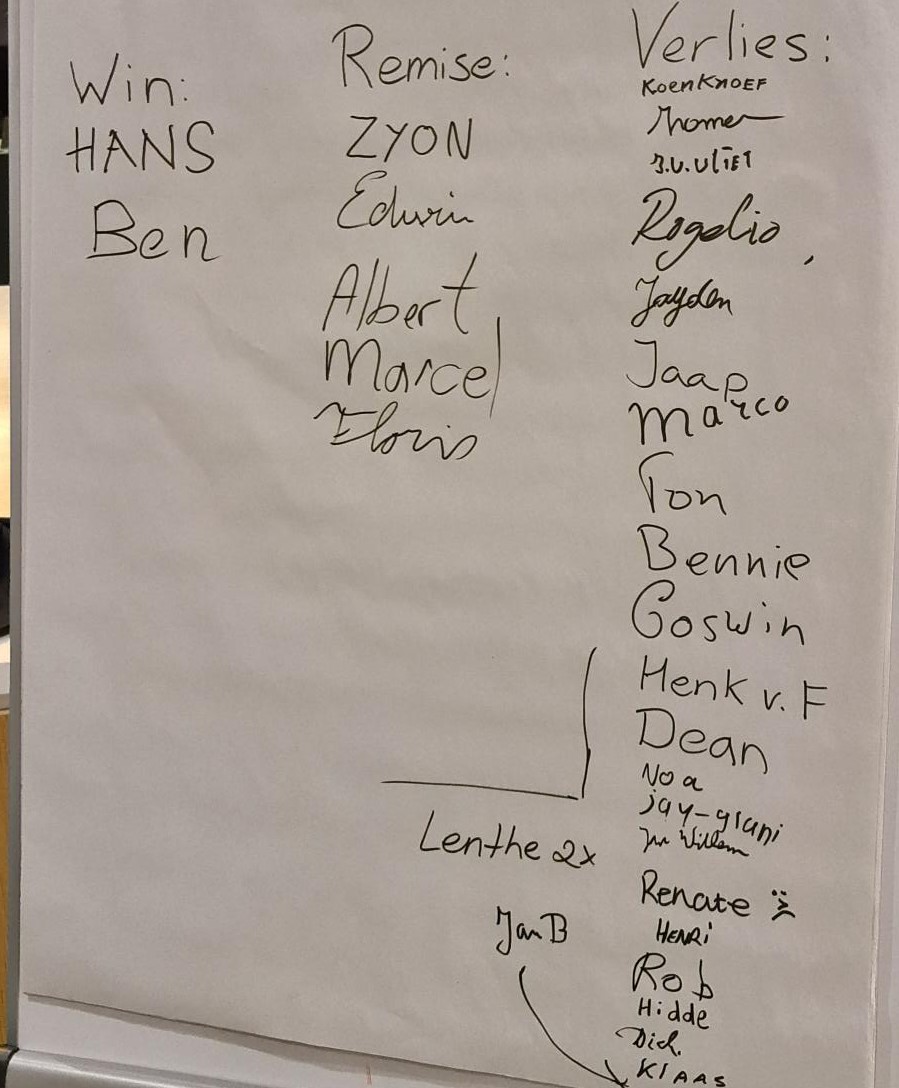 Win:
HANS
Ben
Remise:
ZYON
Edwin
Albert
Marcel
Floris
Verlies:
Koen Knoef
B.v.Vliet
Rogelio
Jayden
Jaap
Marco
Ton
Bennie
Goswin
Henk v. F
Dean
Noa
jay-giani
Jan Willem
Renate
HENRi
Rob
Hidde
KLAAS
Lenthe 2x
Jan B